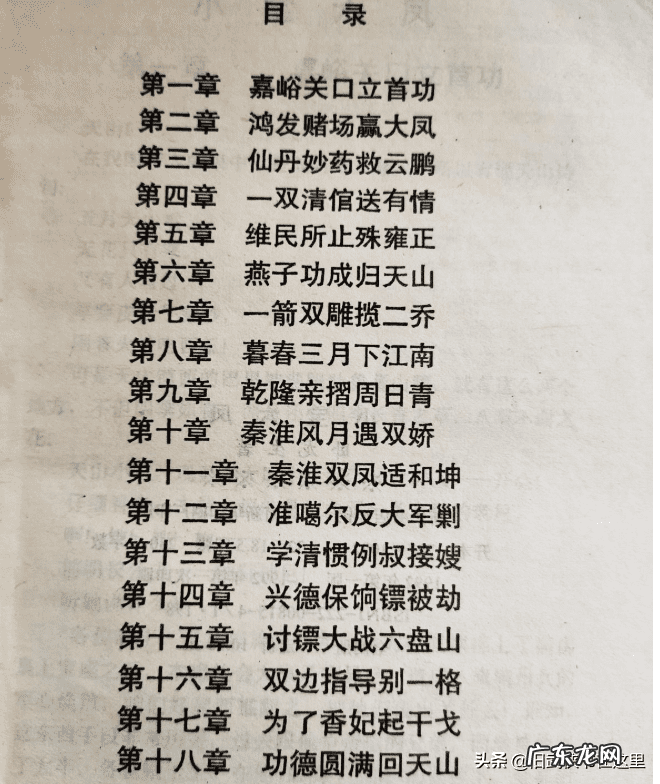 目 录
第一章 嘉峪关口立首功
第二章 鸿发赌场赢大凤
第三章 仙丹妙药救云鹏
第四章 一双清倌送有情
第五章 维民所止殊雍正
第六章 燕子功成归天山
第七章 一箭双雕揽二乔
第八章 暮春三月下江南
第九章 乾隆亲摺周日青
第十章 秦淮风月遇双娇
第十一章 秦淮双凤适和坤
第十二章 准噶尔反大军剿
第十三章 学清惯例叔接嫂
第十四章 兴德保饷镖被劫
第十五章 讨镖大战六盘山
第十六章 双边指导别一格
第十七章 为了香妃起干戈
第十八章 功德圆满回天山
头条
广东龙网